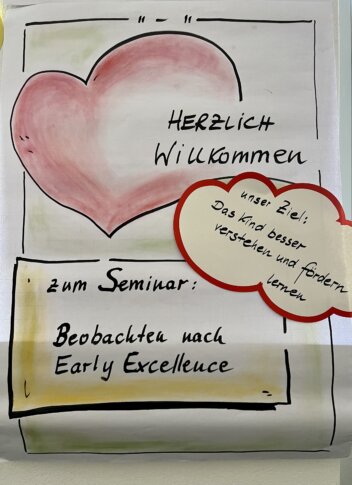 HERZLICH
Willkommen
unser Ziel:
Das Kind besser
verstehen und fördern
lernen
zum Seminar:
Beobachten nach
Early Excellence